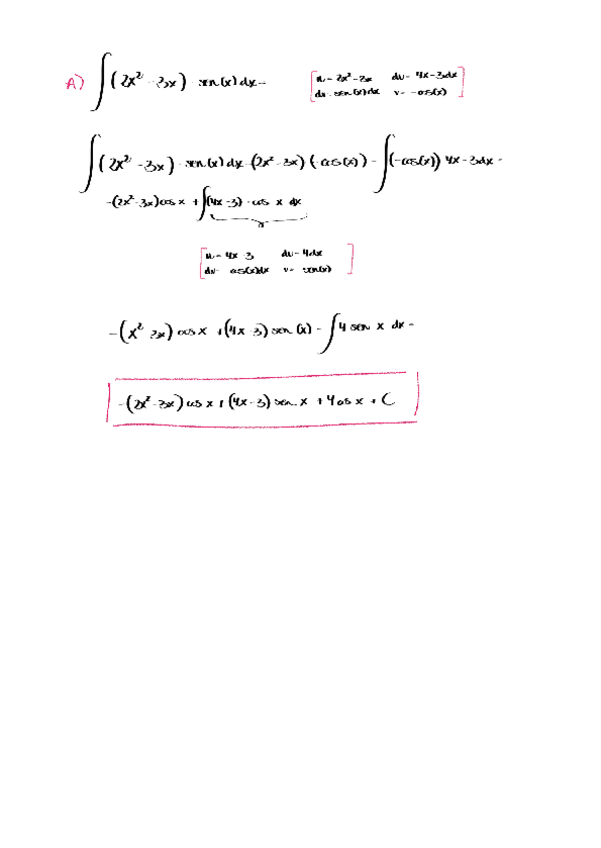 A) ∫(2x² - 3x) · sen(x) dx = [u = 2x² - 3x du = 4x - 3dx
dv = sen(x) dx v = -cos(x)]
∫(2x² - 3x) · sen(x) dx = (2x² - 3x) (-cos(x)) - ∫(-cos(x)) 4x - 3dx =
-(2x² - 3x) cos x + ∫(4x - 3) · cos x dx
[u = 4x - 3 du = 4dx
dv = cos(x)dx v = sen(x)]
-(x² - 3x) cos x + (4x - 3) sen (x) - ∫4 sen x dx =
-(2x² - 3x) cos x + (4x - 3) sen x + 4 cos x + C